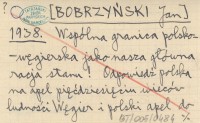 ? [BOBRZYŃSKI Jan]
1938. Wspólna granica polsko-
węgierska jako nasza główna
racja stanu! Odpowiedź polska
na apel pięćdziesięciu wiecow
ludności Węgier i polski apel do